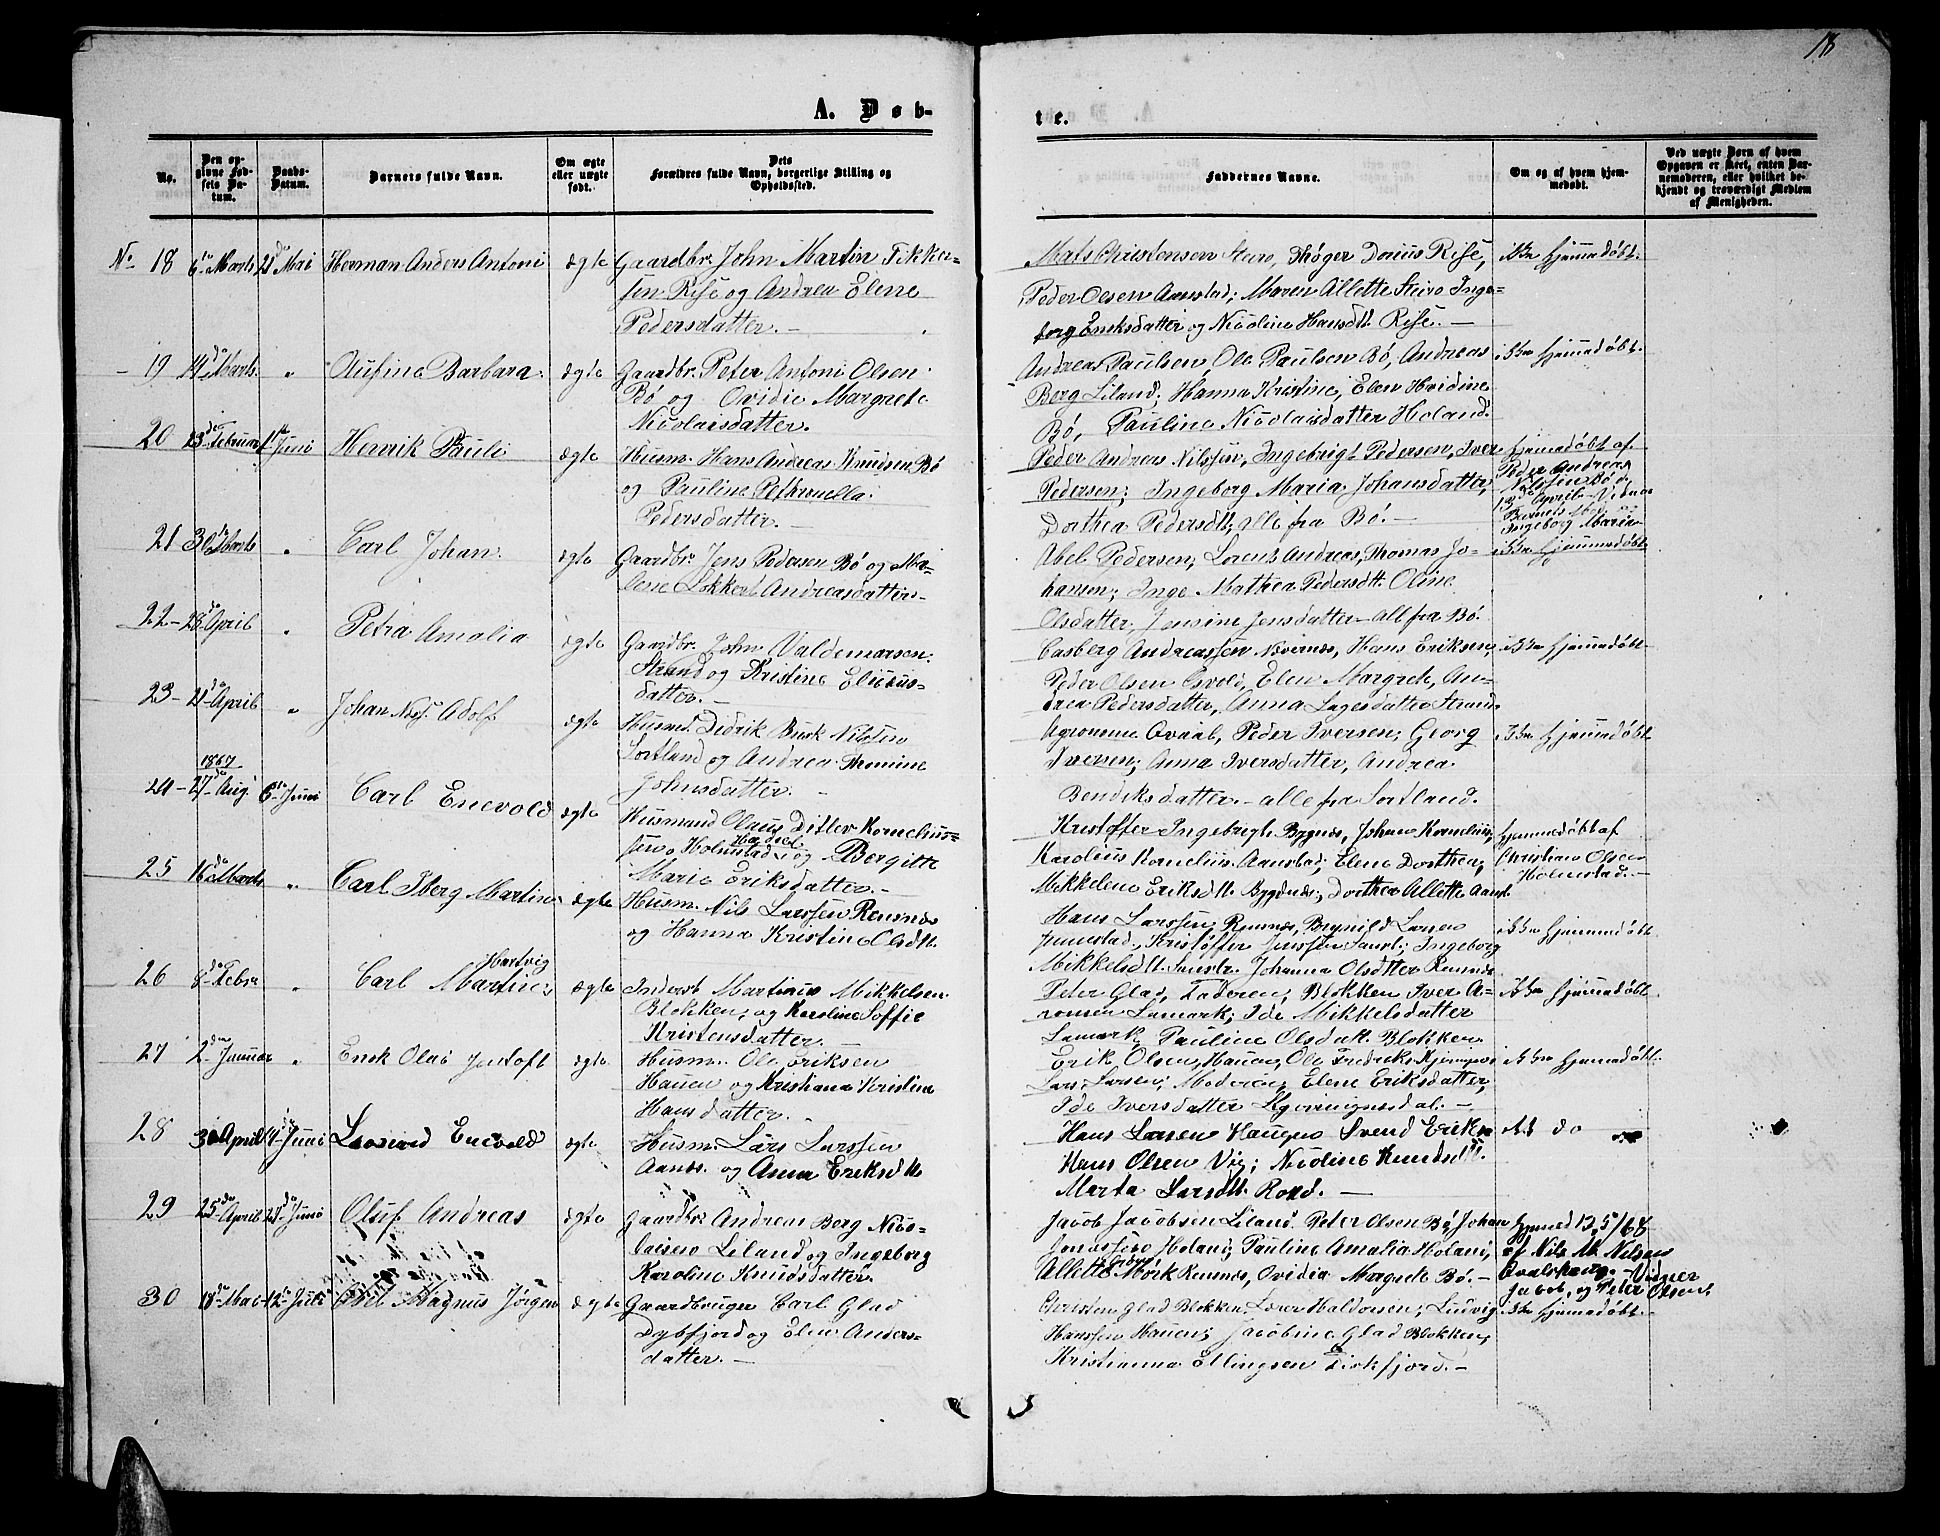 18
A. Døb-
te.
No.
Den op-
givne Fød-
sels Da-
tum.
Daabs-
Datum.
Barnets fulde Navn.
Om ægte
eller uægte
født.
Dets
Forældres fulde Navn, borgerlige Stilling og
Opholdssted.
Faddernes Navne.
Om og af hvem hjem-
medøbt.
Ved uægte Børn af hvem
Opgaven er skeet, enten Bar-
nemoderen, eller hvilket be-
kjendt og troværdigt Medlem
af Menigheden.
No 18 6te Marts 21de Mai Herman Anders Antoni ægte Gaardbr. John Martin Fikker-
sen Rise og Andrea Elene
Pedersdatter. —
Mats Christensen Steiro, Thøger Dorius Rise, ikke hjemmedøbt.
Peder Olsen Aanstad; Maren Allette Steiro Inge-
borg Eriksdatter og Nicoline Hansdtt. Rise. —
19 14de Marts. " Aufine Barbara ægte Gaardbr. Peter Antoni Olsen
Bø og Ovidie Margrete
Nicolaisdatter.
Andreas Paulsen, Ole Paulsen Bø, Andreas ikke hjemmedøbt.
Berg Liland; Hanna Kristine, Elen Hvidine
Bø, Pauline Nicolaisdatter Holand.
20 23de Februar 1ste Juni Henrik Pauli ægte Husm. Hans Andreas Knudsen Bø
og Pauline Petronella
Pedersdatter. —
Peder Andreas Nilssen, Ingebrigt Pedersen, Iver
Pedersen; Ingeborg Maria Johansdatter,
Dorthea Pedersdtt, alle fra Bø. —
hjemmedøbt af
Peder Andreas
Nilssen Bø d.
13de April. Vidner
Ingeborg Maria
21 30 Marts " Carl Johan ægte Gaardbr. Jens Pedersen Bø og Ma-
lene Lokkert Andreasdatter
Abel Pedersen, Lorents Andreas, Thomas Jo- ikke hjemmedøbt
hansen; Inge Mathea Pedersdtt. Oline
Olsdatter, Jensine Jensdatter all fra Bø.
22 28de April " Petra Amalia ægte Gaardbr. John Valdemarsen
Strand og Kristine Elieus-
datter. —
Casberg Andreassen Hans Eriksen, ikke hjemmedøbt
Peder Olsen Elen Margrete, An-
drea Pedersdatter, Anna Lagesdatter Strand.
23 21de April " Johan Adolf ægte Husmd. Didrik Buck Nilssen
Sortland og Andrea Thomine
Johnsdatter. —
Agronom Qvaal, Peder Iversen; Georg ikke hjemmedøbt
Iversen; Anna Iversdatter, Andrea
Bendiksdatter. — alle fra Sortland.
24 1867 27de Aug. 6te Juni Carl Enevold ægte Husmand Olaus Ditlev Kornelius-
sen Holmstad Hadsel og Bergitte
Marie Eriksdatter. —
Kristoffer Ingebrigts. Bygnes, Johan Kornelius,
Karolius Kornelius. Aanstad; Elene Dorthea,
Mikkeline Eriksdtt. Bygdnes, Dorthea Allette Aanst.
hjemmedøbt af
Christian Olsen
Holmstad. —
25 16de Marts " Carl Iberg Martin ægte Husm. Nils Larssen Rensnes
og Hanna Kristine Olsdtt.
Hans Larssen Rensnes, Brynild Larsen ikke hjemmedøbt
Kristoffer Jenssen Ingeborg
Mikkelsdtt. Johanna Olsdtter Rensnes
26 8de Febr " Carl Hartvig Martin ægte Inderst Martinius Mikkelsen
Blokken, og Karoline Soffie
Kristensdatter. —
Peter Glad, Faderen, Blokken Iver A- ikke hjemmedøbt
ronsen Lamark; Ide Mikkelsdatter
Lamark, Pauline Olsdatt. Blokken
27 2den Januar " Erick Olai Jentoft ægte Husm. Ole Eriksen
Hauen og Kristiana Kristine
Hansdatter. —
Erik Olsen, Hauen, Ole Fredriks ikke hjemmedøbt.
Lars Larsen; Moderen, Elene Eriksdatter,
Ide Iversdatter —
28 30 April 14de Juni Enevold ægte Husm. Lars Larssen
Aanes. og Anna Eriksdtt.
Hans Larsen Haugen Svend Eriks do
Hans Olsen Vig; Nicoline Knudsdtt.
Marta Larsdtt. —
29 25de April 24de Juni Oluf Andreas ægte Gaardbr. Andreas Berg Nico-
laisen Liland og Ingeborg
Karoline Knudsdatter.
Jacob Jacobsen Liland. Peter Olsen Bø, Johan
Jonassen Holand; Pauline Amalia Holand,
Allette Mørk Rensnes, Ovidia Margrete Bø. —
Hjmed 12,5/68
af Nils M. Nilsen
Kvalshaug. — Vidner
Jacob, og Peter Olsens.
30 18de Mai 12te Juli Magnus Jørgen ægte Gaardbruger Carl Glad
Dybfjord og Elen Anders-
datter. —
Christen Glad Blokken, Haldorsen; Ludvig ikke hjemmedøbt. —
Hanssen Hauen; Jacobine Glad Blokken,
Kristianna Ellingsen Dybfjord. —